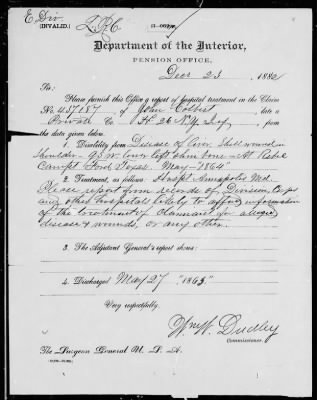 E Div.
(INVALID.)
Department of the Interior,
PENSION OFFICE,
Decr 23, 1882
To:
Please furnish this Office a report of hospital treatment in the Claim
No. 457157 of John Colbert
Private Co. H 26 N.Y. Inf, from
the data given below.
1. Disability from Disease of liver Shell wound in
shoulder G.S.W. lower left shin bone
Camp Ford Texas. May 1864
2. Treatment, as follows: Hospl Annapolis Md.
Please report from records of Division, Corps
any other hospitals likely to afford information
of the treatment of claimant for alleged
disease & wounds, or any other.
3. The Adjutant General's report shows:
4. Discharged May 27 "1865"
Very respectfully,
Wm W. Dudley
Commissioner.
The Surgeon General U. S. A.